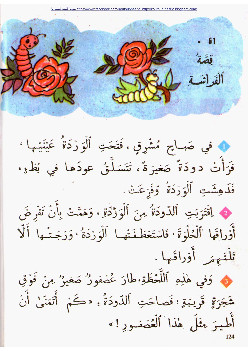 61 .
قِصَّةُ
اَلْفَرَاشَةِ
1 فِي صَبَاحٍ مُشْرِقٍ، فَتَحَتِ اَلْوَرْدَةُ عَيْنَيْهَا،
فَرَأَتْ دُودَةً صَغِيرَةً، تَتَسَلَّقُ عُودَهَا فِي بُطْءٍ،
فَدَهِشَتِ اَلْوَرْدَةُ وَفَزِعَتْ.
2 اِقْتَرَبَتِ اَلدُّودَةُ مِنَ اَلْوَرْدَةِ، وَهَمَّتْ بِأَنْ تَقْرِضَ
أَوْرَاقَهَا اَلْحُلْوَةَ، فَاسْتَعْطَفَتْهَا اَلْوَرْدَةُ وَرَجَتْهَا أَلَّا
تَلْتَهِمَ أَوْرَاقَهَا.
3 وَفِي هَذِهِ اَللَّحْظَةِ، طَارَ عُصْفُورٌ صَغِيرٌ مِنْ فَوْقِ
شَجَرَةٍ قَرِيبَةٍ، فَصَاحَتِ اَلدُّودَةُ: «كَمْ أَتَمَنَّى أَنْ
أَطِيرَ مِثْلَ هَذَا اَلْعُصْفُورِ!»
124